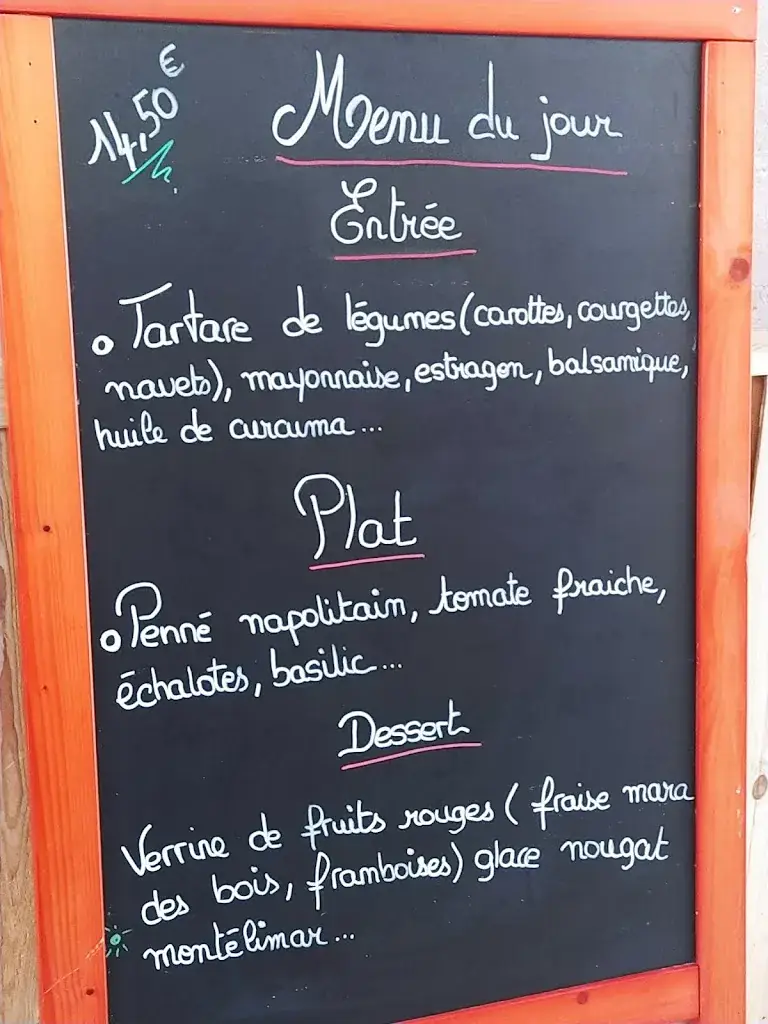 14,50€
Menu du jour
Entrée
Tartare de légumes (carottes, courgettes,
navets), mayonnaise, estragon, balsamique,
huile de curcuma...
Plat
Penné napolitain, tomate fraiche,
échalotes, basilic...
Dessert
Verrine de fruits rouges (fraise mara
des bois, framboises) glace nougat
montélimar...